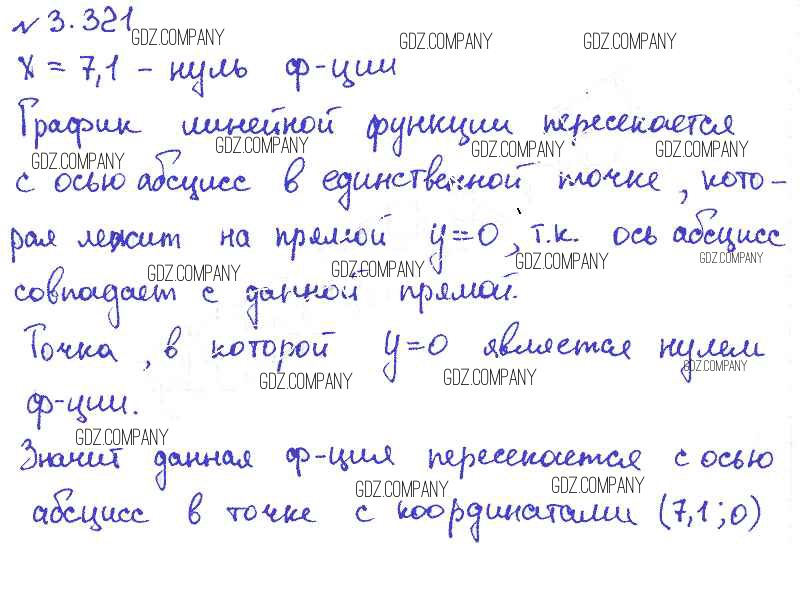 № 3.321
GDZ.COMPANY GDZ.COMPANY GDZ.COMPANY
x = 7,1 - нуль ф-ции
График линейной функции пересекается
GDZ.COMPANY GDZ.COMPANY GDZ.COMPANY GDZ.COMPANY
с осью абсцисс в единственной точке, кото-
рая лежит на прямой y=0, т.к. ось абсцисс
GDZ.COMPANY GDZ.COMPANY GDZ.COMPANY GDZ.COMPANY
совпадает с данной прямой.
Точка, в которой y=0 является нулем
GDZ.COMPANY GDZ.COMPANY GDZ.COMPANY
ф-ции.
GDZ.COMPANY
Значит данная ф-ция пересекается с осью
GDZ.COMPANY GDZ.COMPANY
абсцисс в точке с координатами (7,1;0)